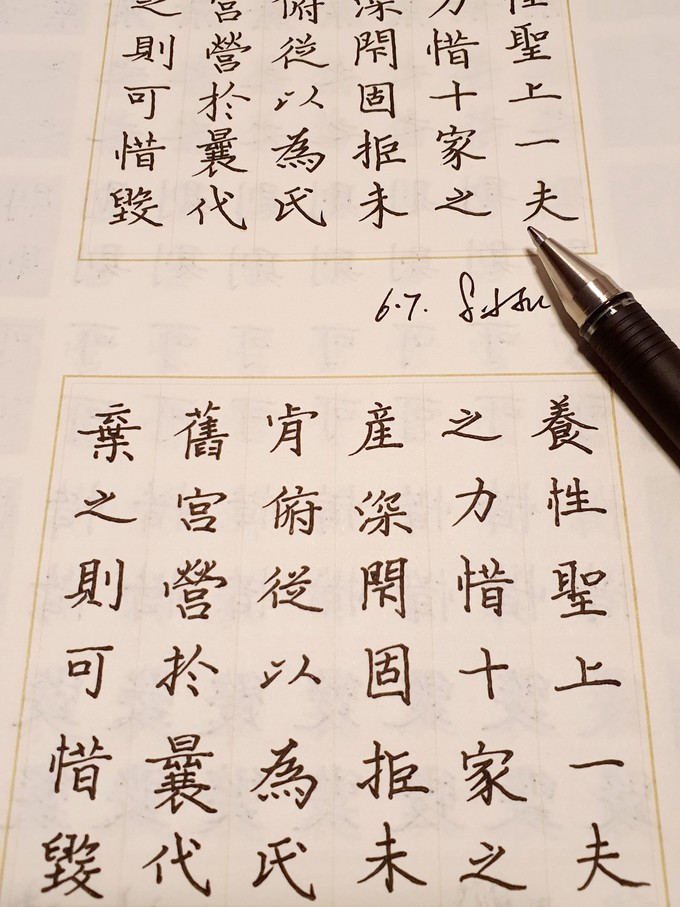 性聖上一夫
力惜十家之
深閇固拒未
俯從以為氏
宫營於曩代
之則可惜毀
6.7.
養性聖上一夫
之力惜十家之
産深閇固拒未
肯俯從以為氏
舊宫營於曩代
棄之則可惜毀